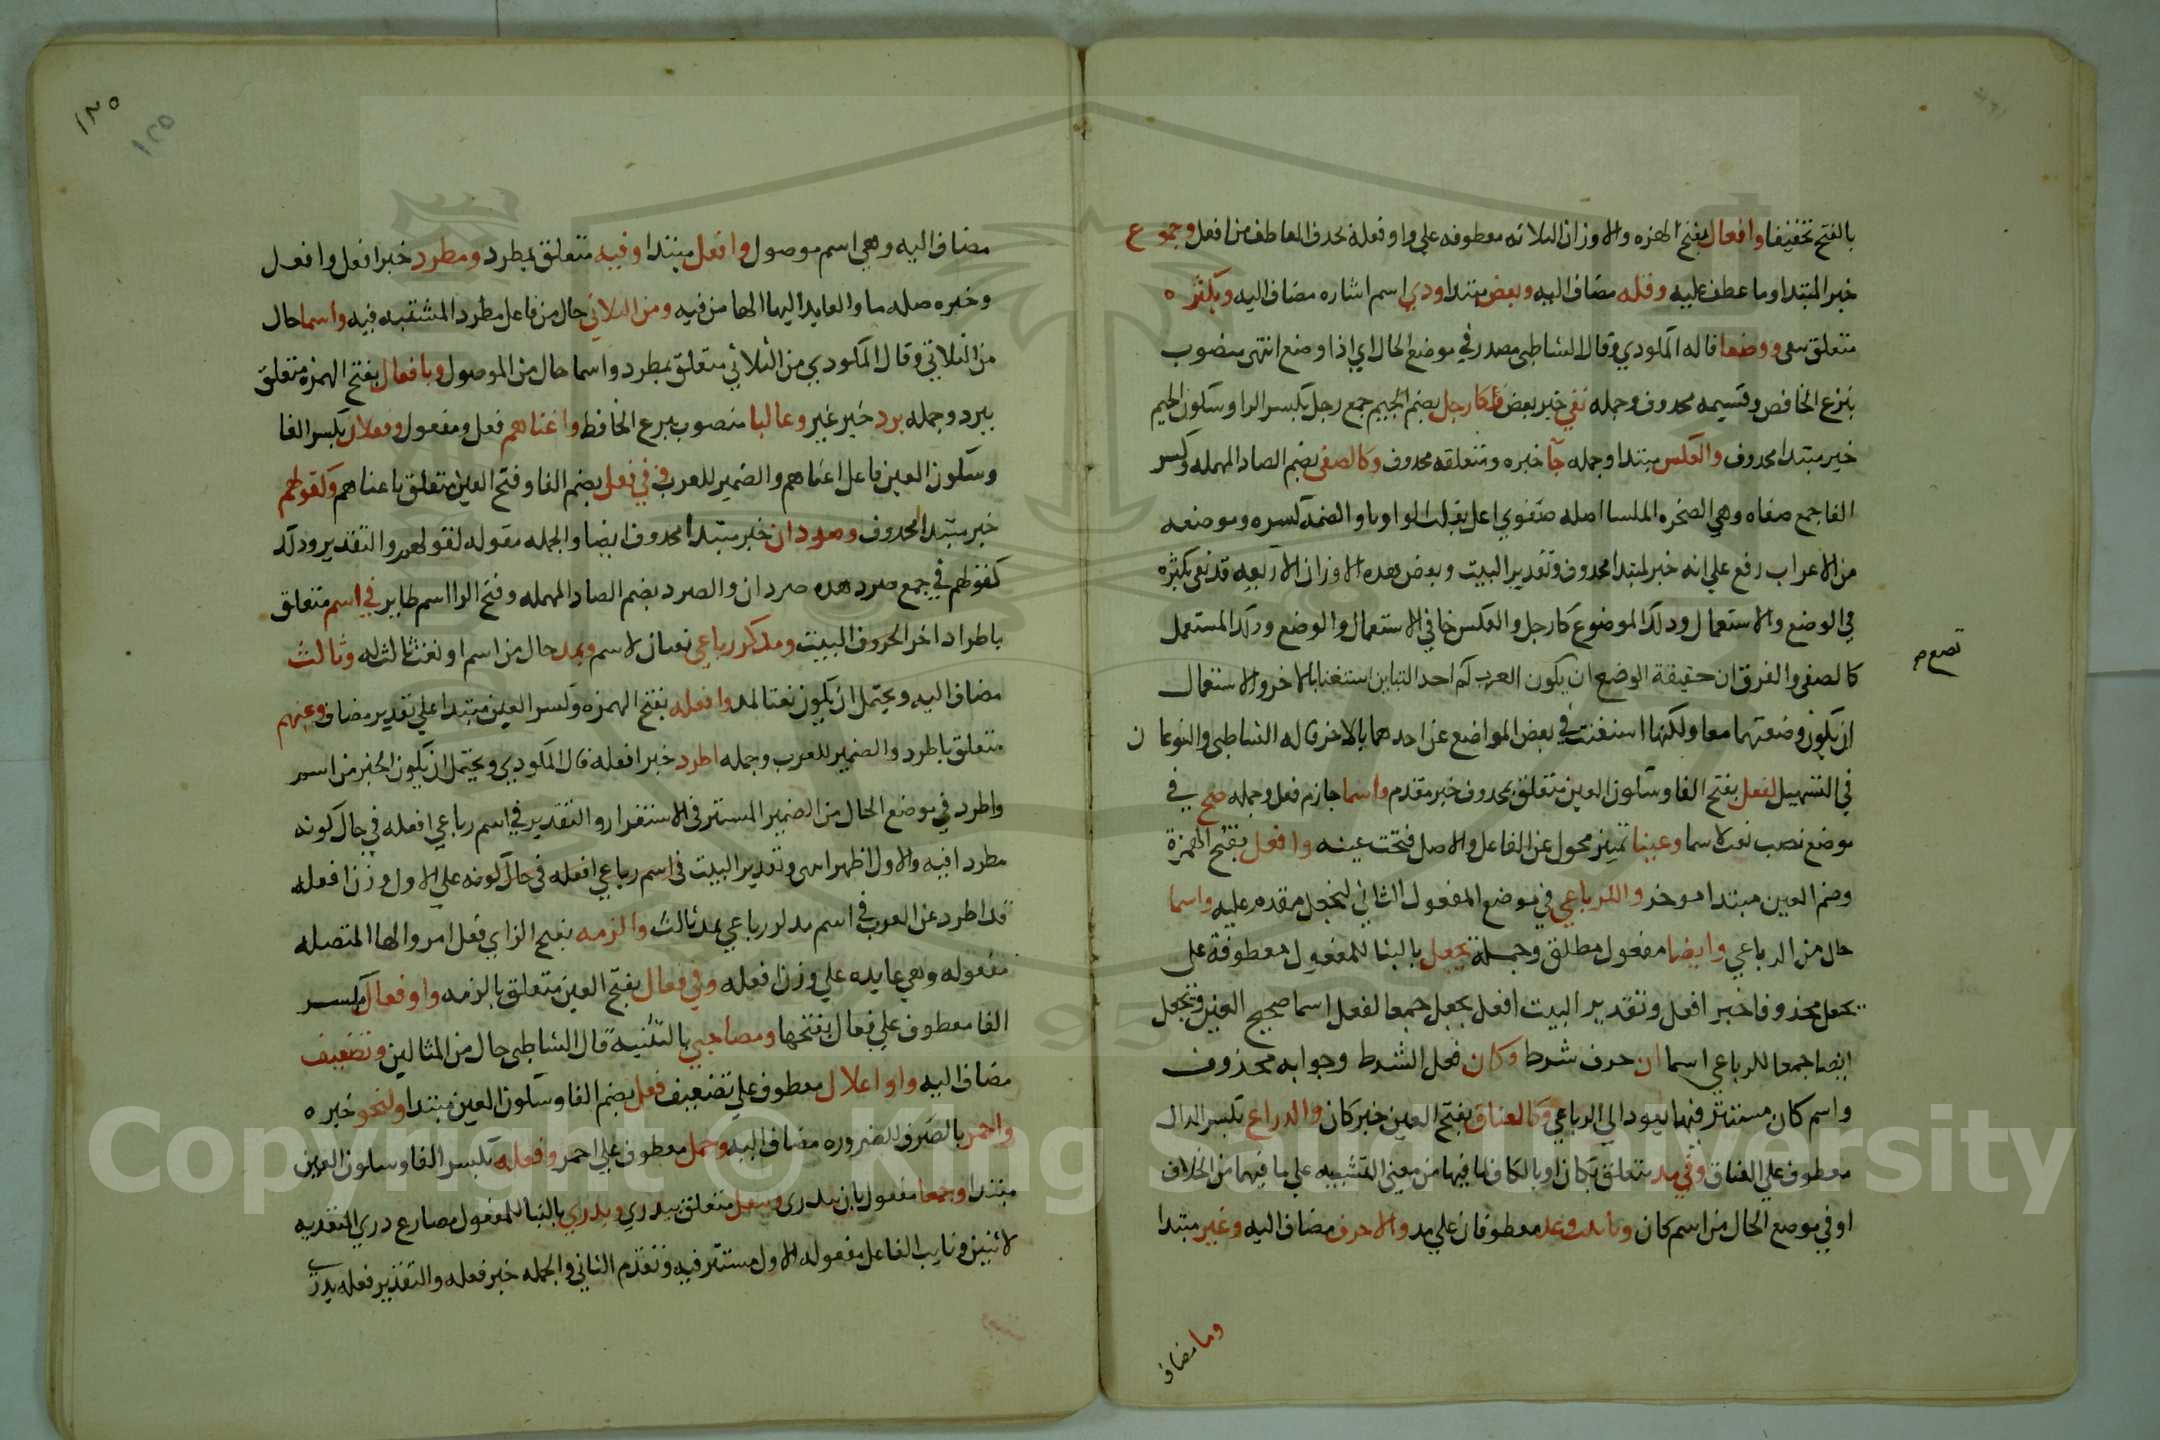 بالفتح تخفيفا وافعال بفتح الهمزه والاوزان الثلاثه معطوفه علي واو فعلة بحذف العاطف من افعل وجموع
خبر المبتدا وما عطف عليه وقله مضاف اليه وبعض مبتدا وذي اسم اشاره مضاف اليه وبكثره
متعلق بيفي ووضعا قاله المكودي وقال الشاطبي مصدر في موضع الحال اي اذا وضع انتهى منصوب
بنزع الخافض وقسيمه محذوف وجمله يفي خبر بعض كارجل بضم الجيم جمع رجل بكسر الرا وسكون الجيم
خبر مبتدا محذوف والعكس مبتدا وجمله جآ خبره ومتعلقه محذوف وكالصفى بضم الصاد المهمله وكسر
الفا جمع صفاه وهي الصخره الملسا اصله صفوي اعل بقلب الواو يا والضمه كسره وموضعه
من الاعراب رفع علي انه خبر لمبتدا محذوف وتقدير البيت وبعض هذه الاوزان الاربعه قد يفي بكثره
في الوضع والاستعمال وذلك الموضوع كارجل والعكس جا في الاستعمال والوضع وذلك المستعمل
كالصفى والفرق ان حقيقة الوضع ان يكون العرب لم احد البناين استغنا بالاخر والاستعمال
ان يكون وضعتهما معا ولكنها استغنت في بعض المواضع عن احدهما بالاخر قاله الشاطبي والنوعان
في التسهيل لفعل بفتح الفا وسكون العين متعلق بمحذوف خبر مقدم واسما جازم فعل وجمله صح في
موضع نصب نعت لاسما وعينا تمييز محول عن الفاعل والاصل فتحت عينه وافعل بفتح الهمزة
وضم العين مبتدا موخر وللرباعي في موضع المفعول الثاني ليجعل مقدم عليه واسما
حال من الرباعي وايضا مفعول مطلق وجملة يجعل بالبنا للمفعول معطوفة على
يجعل محذوفا خبر افعل وتقدير البيت افعل يجعل جمعا لفعل اسما صحيح العين ويجعل
ايضا جمعا للرباعي اسما ان حرف شرط وكان فعل الشرط وجوابه محذوف
واسم كان مستتر فيها يعود الي الرباعي وكالعناق بفتح العين خبر كان والذراع بكسر الذال
معطوف علي العناق وفي مد متعلق بكان او بالكاف لما فيها من معنى التشبيه علي ما فيها من الخلاف
او في موضع الحال من اسم كان وتانيث وعد معطوفان علي مد والاحرف مضاف اليه وغير مبتدا
وما مضاف
١٢٥
١٢٥
مضاف اليه وهي اسم موصول وافعل مبتدا وفيه متعلق بمطرد ومطرد خبر افعل وافعل
وخبره صله ما والعايد اليها الها من فيه ومن الثلاثي حال من فاعل مطرد المستتر فيه واسما حال
من الثلاثي وقال المكودي من الثلاثي متعلق بمطرد واسما حال من الموصول وبافعال بفتح الهمزه متعلق
بيرد وجمله يرد خبر غير وغالبا منصوب بنزع الخافظ واغناهم فعل ومفعول وفعلان بكسر الفا
وسكون العين فاعل اغناهم والضمير للعرب في فعل بضم الفا وفتح العين متعلق باغناهم وكقولهم
خبر مبتدا محذوف وصردان خبر مبتدا محذوف ايضا والجمله مقوله لقولهم والتقدير وذلك
كقولهم في جمع صرد هذه صردان والصرد بضم الصاد المهمله وفتح الرا اسم طاير في اسم متعلق
باطراد اخر الحروف البيت ومذكر رباعي نعتان لاسم وبمد حال من اسم او نعت ثالث له وثالث
مضاف اليه ويحتمل ان يكون نعتا لمد وافعله بفتح الهمزه وكسر العين مبتدا علي تقدير مضاف وعنهم
متعلق باطرد والضمير للعرب وجمله اطرد خبر افعله قال المكودي ويحتمل ان يكون الخبر من اسم
واطرد في موضع الحال من الضمير المستتر في الاستقرار والتقدير في اسم رباعي افعله في حال كونه
مطردا فيه والاول اظهر انتهى وتقدير البيت في اسم رباعي افعله في حال كونه علي الاول وزن افعله
قد اطرد عن العرب في اسم مذكر رباعي بمد ثالث والزمه بفتح الزاي فعل امر والها المتصله
مفعوله وهي عايده علي وزن افعله وفي فعال بفتح العين متعلق بالزمه واو فعال بكسر
الفا معطوف علي فعال بفتحها ومصاحبي بالتثنية قال الشاطبي حال من المثالين وتضعيف
مضاف اليه واو اعلال معطوف علي تضعيف فعل بضم الفا وسكون العين مبتدا ولنحو خبره
واحمر بالصرف للضروره مضاف اليه وحمل معطوف علي احمر وفعله بكسر الفا وسكون العين
مبتدا وجمعا مفعول بان يدرى وبنقل متعلق بيدري ويدري بالبنا للمفعول مضارع دري المتعديه
لاثنين ونايب الفاعل مفعوله الاول مستتر فيه وتقدم الثاني والجمله خبر فعله والتقدير فعله يدرى
Copyright © King Saud University